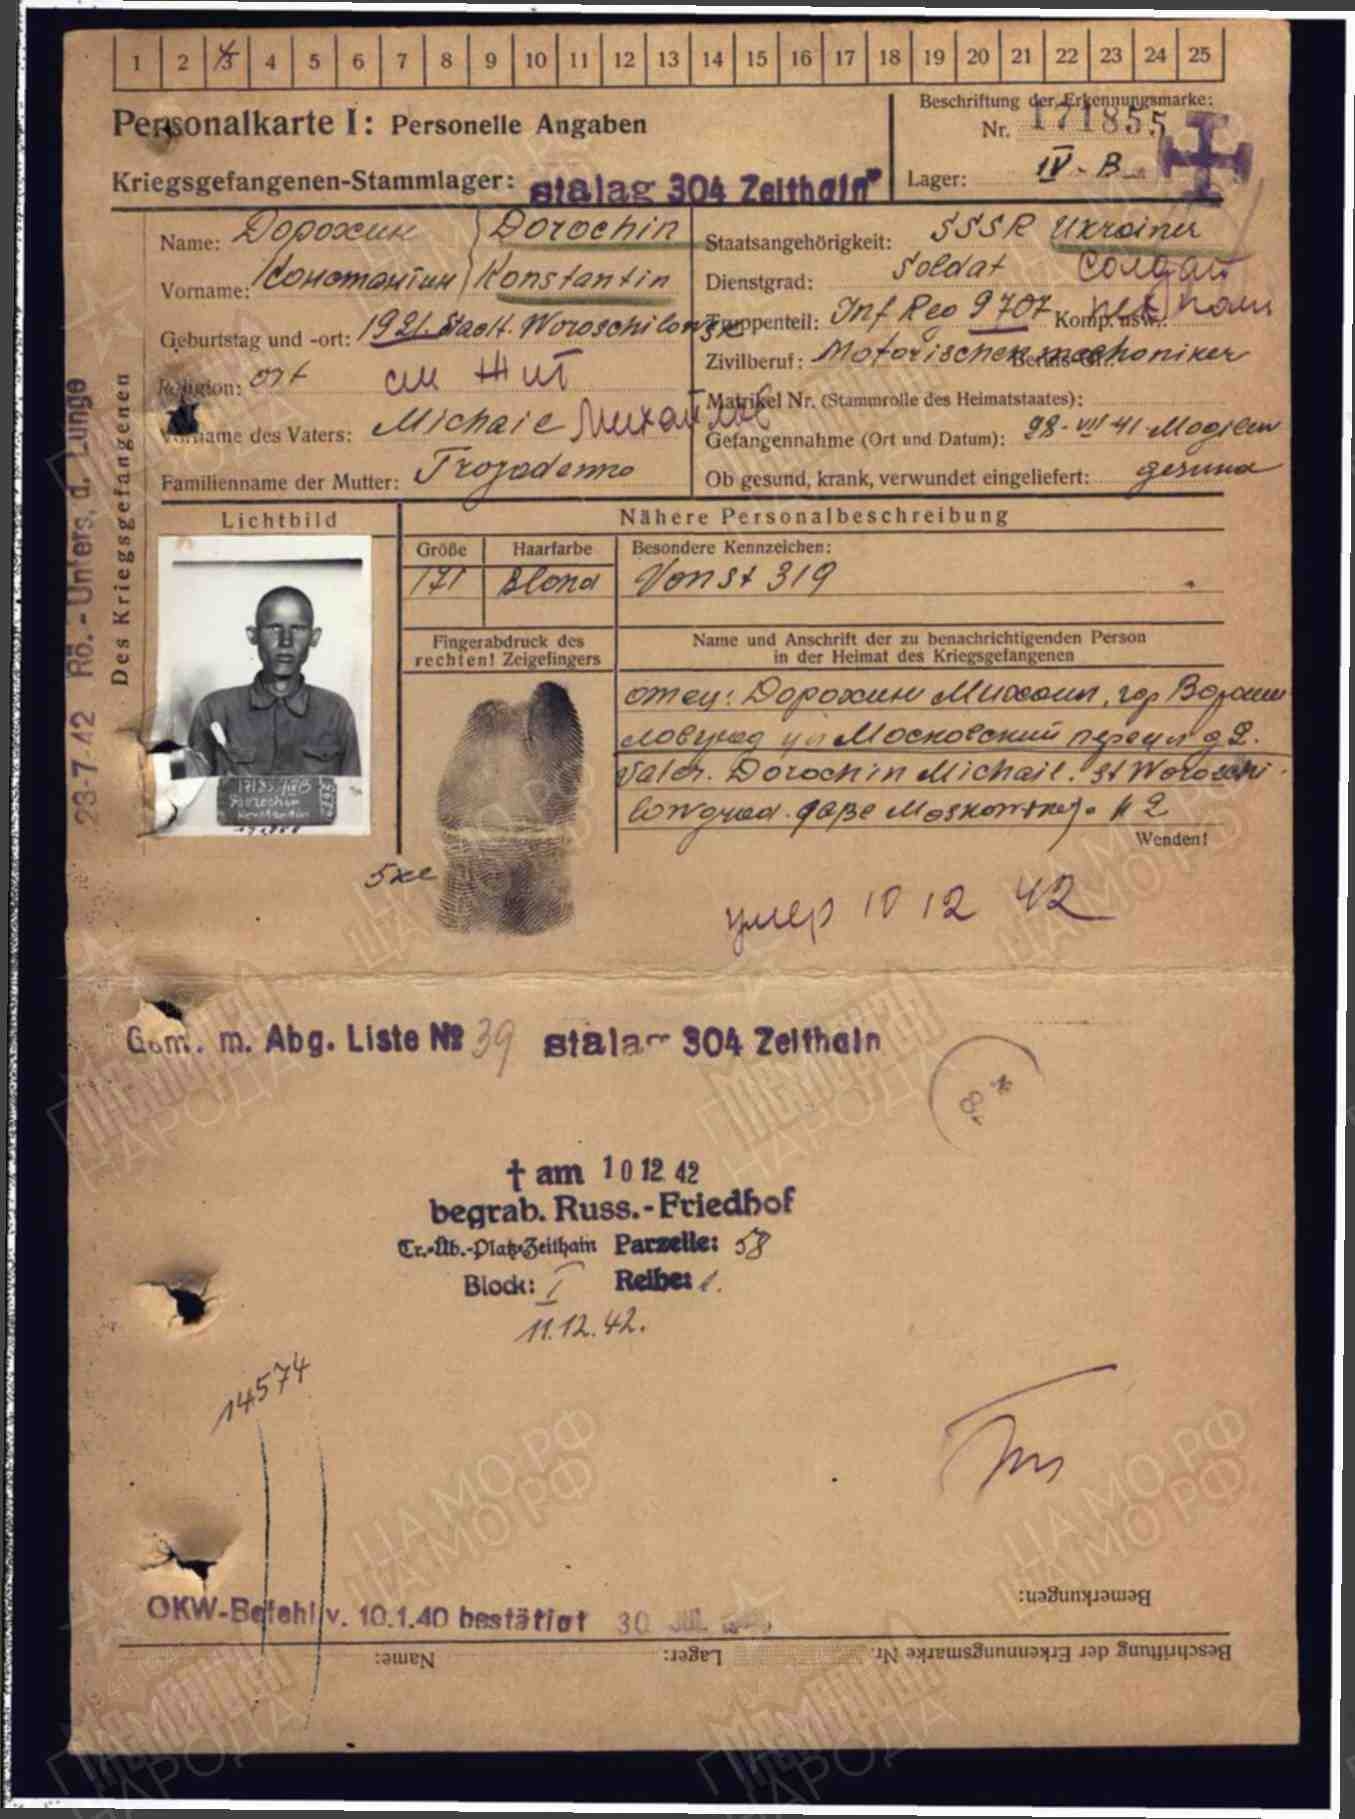 1 2 3 4 5 6 7 8 9 10 11 12 13 14 15 16 17 18 19 20 21 22 23 24 25
Personalkarte I: Personelle Angaben
Beschriftung der Erkennungsmarke:
Nr. 171855
Kriegsgefangenen-Stammlager: stalag 304 Zeithain
Lager: IV-B
Name: Дорохин Dorochin
Staatsangehörigkeit: SSSR Ukrainer
Vorname: Константин Konstantin
Dienstgrad: Soldat солдат
Geburtstag und -ort: 1921. Stadt. Woroschilowsk
Truppenteil: Inf Reg 9707 Komp. usw.:
Religion: ort
Zivilberuf: Motorischen mechaniker Berufs-Gr.:
Matrikel Nr. (Stammrolle des Heimatstaates):
Vorname des Vaters: Michaie
Gefangennahme (Ort und Datum): 28-VII-41-Mogilew
Familienname der Mutter:
Ob gesund, krank, verwundet eingeliefert: gesund
Des Kriegsgefangenen
23-7-42 Rö.-Unters. d. Lunge
Lichtbild
Nähere Personalbeschreibung
Größe Haarfarbe Besondere Kennzeichen:
171 Blond Von St 319
Fingerabdruck des
rechten! Zeigefingers
Name und Anschrift der zu benachrichtigenden Person
in der Heimat des Kriegsgefangenen
отец: Дорохин Михаил, гор Вороши
ловград ул Московский переул д 2.
Vater. Dorochin Michail. St Woroschi
lowgrad. gaße Moskowskej. N 2
Wenden!
Dorochin
Konstantin
умер 10 12 42
Gem. m. Abg. Liste № 39 stalag 304 Zeithain
† am 10 12 42
begrab. Russ.-Friedhof
Tr.-Üb.-Platz Zeithain Parzelle: 58
Block: I Reihe: 1.
11.12.42.
14574
OKW-Befehl v. 10.1.40 bestätigt 30 JUL
Bemerkungen:
Beschriftung der Erkennungsmarke Nr. Lager: Name:
ПАМЯТЬ НАРОДА
ЦАМО РФ